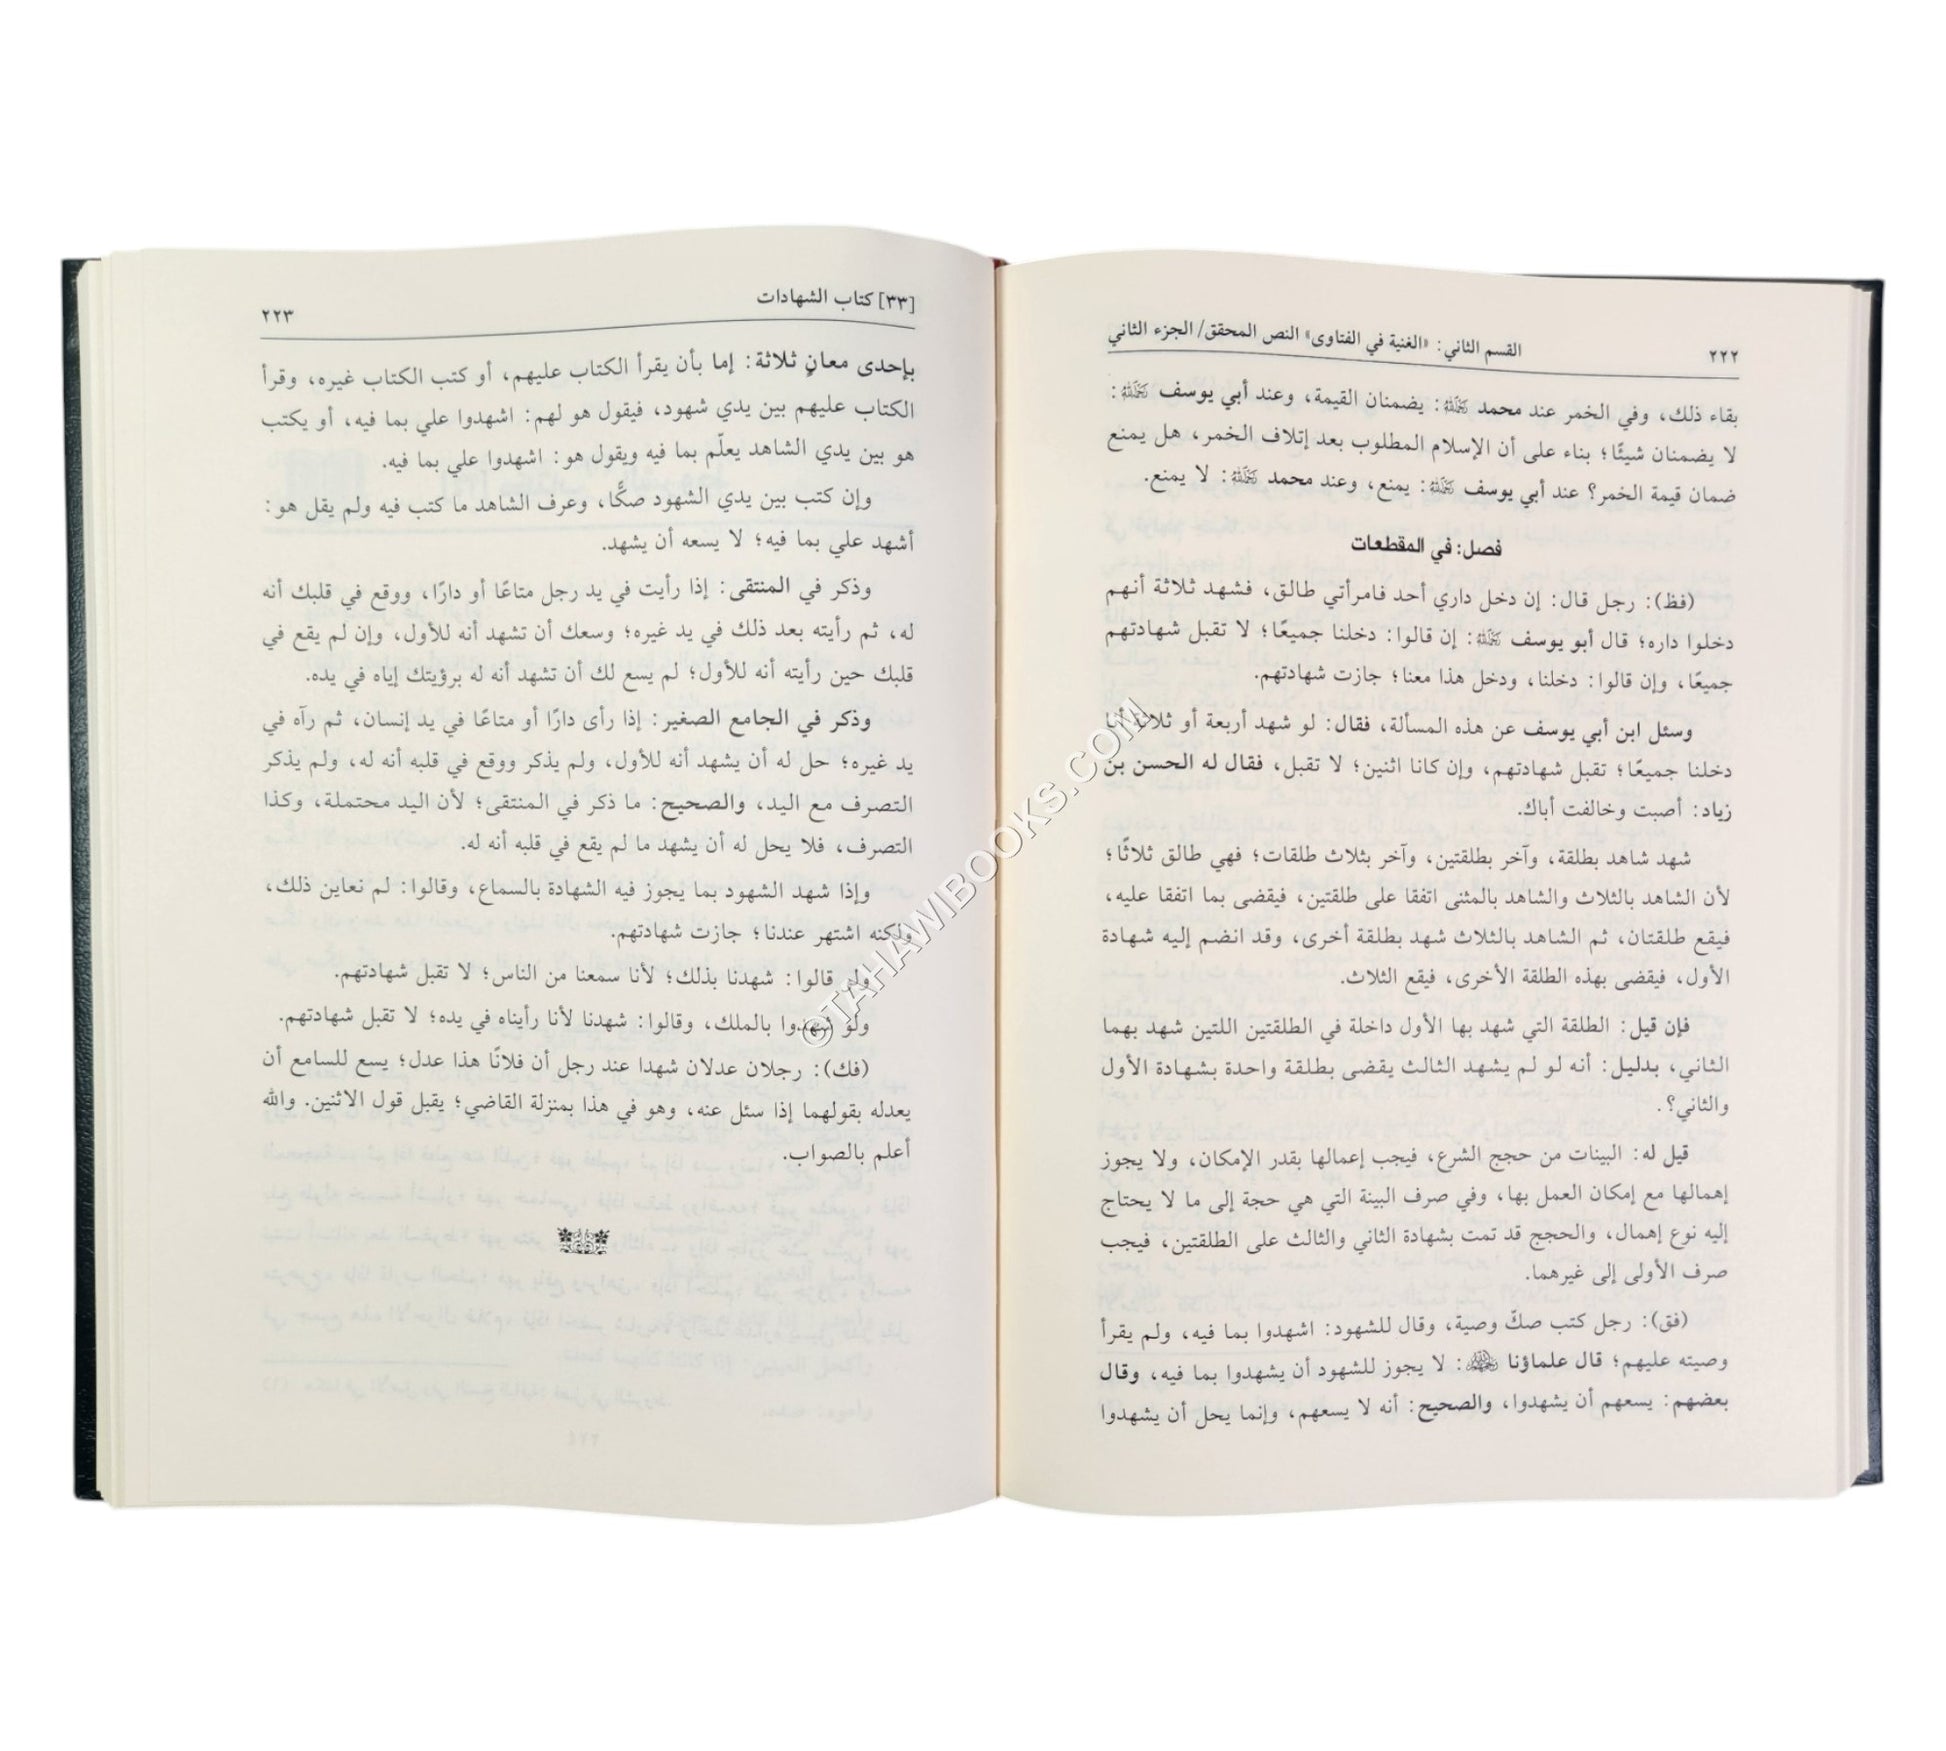 ٢٢٢ القسم الثاني: «الغنية في الفتاوى» النص المحقق/ الجزء الثاني
بقاء ذلك، وفي الخمر عند محمد رحمه الله: يضمنان القيمة، وعند أبي يوسف رحمه الله:
لا يضمنان شيئًا؛ بناء على أن الإسلام المطلوب بعد إتلاف الخمر، هل يمنع
ضمان قيمة الخمر؟ عند أبي يوسف رحمه الله: يمنع، وعند محمد رحمه الله: لا يمنع.
فصل: في المقطعات
(فظ): رجل قال: إن دخل داري أحد فامرأتي طالق، فشهد ثلاثة أنهم
دخلوا داره؛ قال أبو يوسف رحمه الله: إن قالوا: دخلنا جميعًا؛ لا تقبل شهادتهم
جميعًا، وإن قالوا: دخلنا، ودخل هذا معنا؛ جازت شهادتهم.
وسئل ابن أبي يوسف عن هذه المسألة، فقال: لو شهد أربعة أو ثلاثة أنا
دخلنا جميعًا؛ تقبل شهادتهم، وإن كانا اثنين؛ لا تقبل، فقال له الحسن بن
زياد: أصبت وخالفت أباك.
شهد شاهد بطلقة، وآخر بطلقتين، وآخر بثلاث طلقات؛ فهي طالق ثلاثًا؛
لأن الشاهد بالثلاث والشاهد بالمثنى اتفقا على طلقتين، فيقضى بما اتفقا عليه،
فيقع طلقتان، ثم الشاهد بالثلاث شهد بطلقة أخرى، وقد انضم إليه شهادة
الأول، فيقضى بهذه الطلقة الأخرى، فيقع الثلاث.
فإن قيل: الطلقة التي شهد بها الأول داخلة في الطلقتين اللتين شهد بهما
الثاني، بدليل: أنه لو لم يشهد الثالث يقضى بطلقة واحدة بشهادة الأول
والثاني؟.
قيل له: البينات من حجج الشرع، فيجب إعمالها بقدر الإمكان، ولا يجوز
إهمالها مع إمكان العمل بها، وفي صرف البينة التي هي حجة إلى ما لا يحتاج
إليه نوع إهمال، والحجج قد تمت بشهادة الثاني والثالث على الطلقتين، فيجب
صرف الأولى إلى غيرهما.
(فق): رجل كتب صكّ وصية، وقال للشهود: اشهدوا بما فيه، ولم يقرأ
وصيته عليهم؛ قال علماؤنا: لا يجوز للشهود أن يشهدوا بما فيه، وقال
بعضهم: يسعهم أن يشهدوا، والصحيح: أنه لا يسعهم، وإنما يحل أن يشهدوا
[٣٣] كتاب الشهادات ٢٢٣
بإحدى معانٍ ثلاثة: إما بأن يقرأ الكتاب عليهم، أو كتب الكتاب غيره، وقرأ
الكتاب عليهم بين يدي شهود، فيقول هو لهم: اشهدوا علي بما فيه، أو يكتب
هو بين يدي الشاهد يعلّم بما فيه ويقول هو: اشهدوا علي بما فيه.
وإن كتب بين يدي الشهود صكًّا، وعرف الشاهد ما كتب فيه ولم يقل هو:
أشهد علي بما فيه؛ لا يسعه أن يشهد.
وذكر في المنتقى: إذا رأيت في يد رجل متاعًا أو دارًا، ووقع في قلبك أنه
له، ثم رأيته بعد ذلك في يد غيره؛ وسعك أن تشهد أنه للأول، وإن لم يقع في
قلبك حين رأيته أنه للأول؛ لم يسع لك أن تشهد أنه له برؤيتك إياه في يده.
وذكر في الجامع الصغير: إذا رأى دارًا أو متاعًا في يد إنسان، ثم رآه في
يد غيره؛ حل له أن يشهد أنه للأول، ولم يذكر ووقع في قلبه أنه له، ولم يذكر
التصرف مع اليد، والصحيح: ما ذكر في المنتقى؛ لأن اليد محتملة، وكذا
التصرف، فلا يحل له أن يشهد ما لم يقع في قلبه أنه له.
وإذا شهد الشهود بما يجوز فيه الشهادة بالسماع، وقالوا: لم نعاين ذلك،
ولكنه اشتهر عندنا؛ جازت شهادتهم.
ولو قالوا: شهدنا بذلك؛ لأنا سمعنا من الناس؛ لا تقبل شهادتهم.
ولو شهدوا بالملك، وقالوا: شهدنا لأنا رأيناه في يده؛ لا تقبل شهادتهم.
(فك): رجلان عدلان شهدا عند رجل أن فلانًا هذا عدل؛ يسع للسامع أن
يعدله بقولهما إذا سئل عنه، وهو في هذا بمنزلة القاضي؛ يقبل قول الاثنين. والله
أعلم بالصواب.
©TAHAWIBOOKS.COM